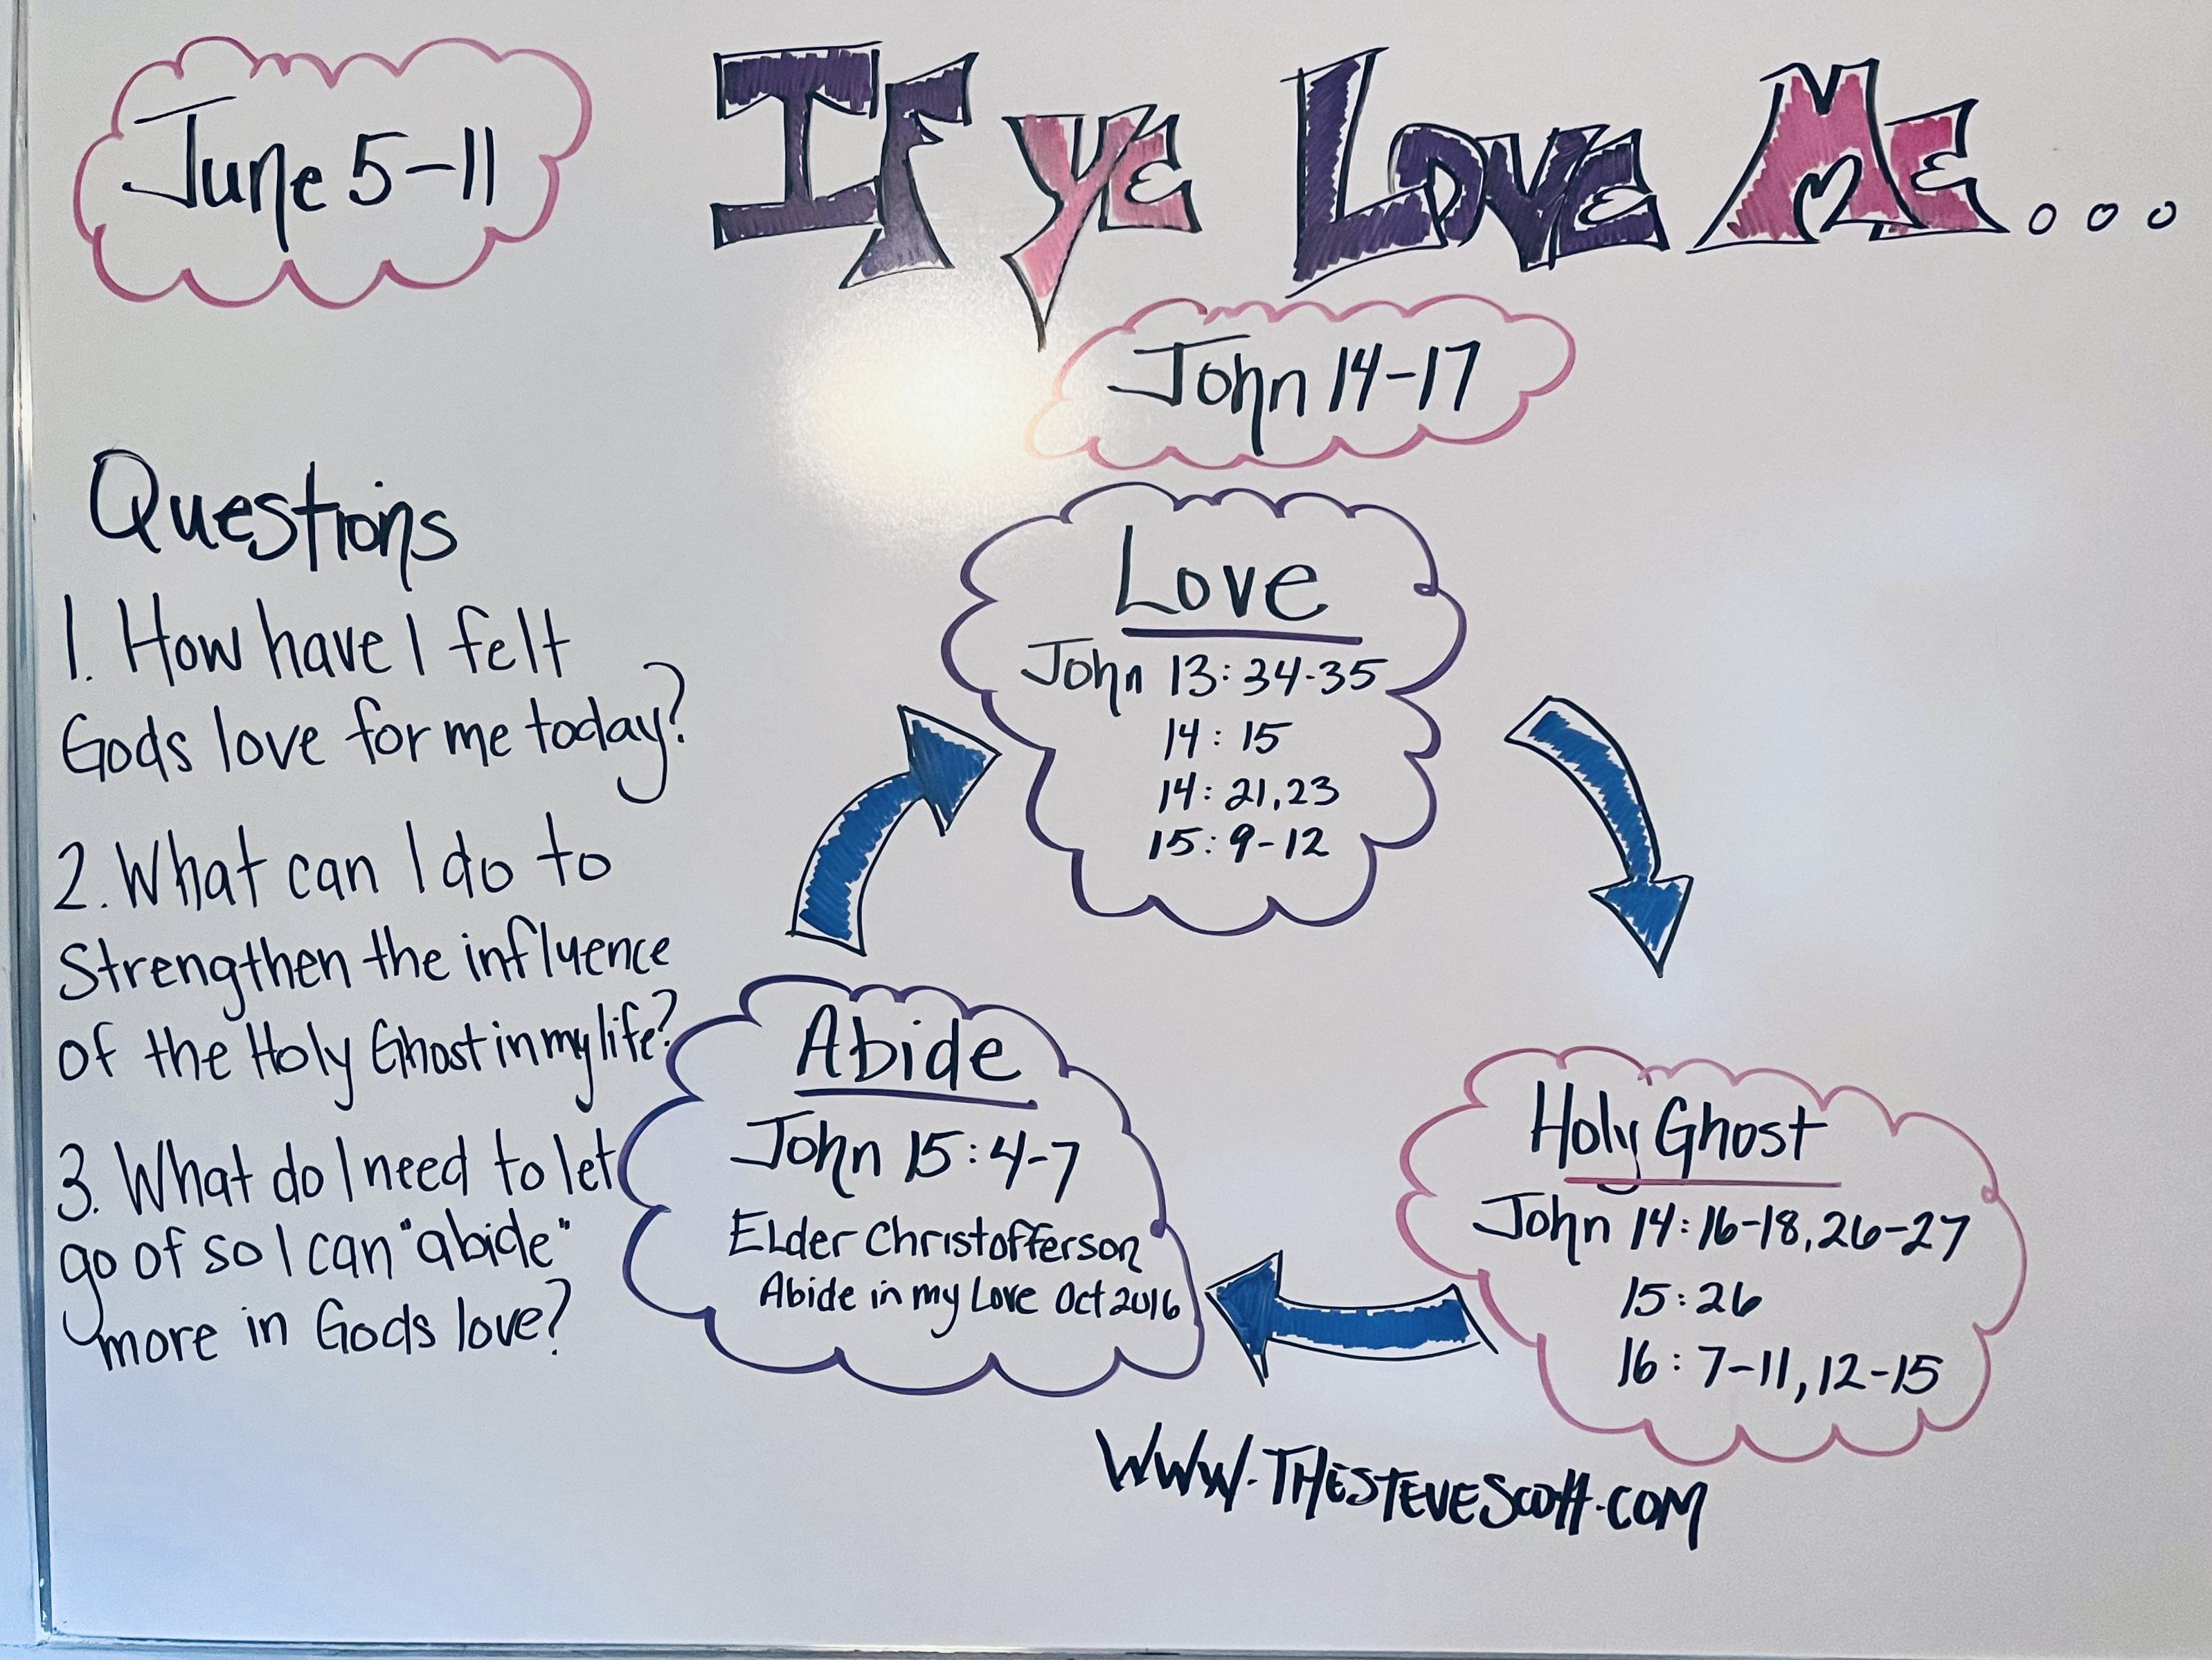 June 5-11
If ye Love Me...
John 14-17
Questions
1. How have I felt
Gods love for me today?
2. What can I do to
Strengthen the influence
of the Holy Ghost in my life?
3. What do I need to let
go of so I can "abide"
more in Gods love?
Love
John 13:34-35
14:15
14:21,23
15:9-12
Holy Ghost
John 14:16-18,26-27
15:26
16:7-11,12-15
Abide
John 15:4-7
Elder Christofferson
Abide in my Love Oct 2016
WWW.THESTEVESCOTT.COM